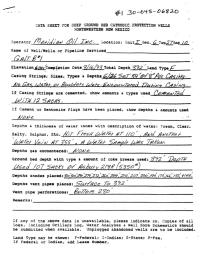 #1 30-045-06820
DATA SHEET FOR DEEP GROUND BED CATHODIC PROTECTION WELLS
NORTHWESTERN NEW MEXICO
Operator Meridian Oil Inc. Location: Unit Sec. Twp Rng
Name of Well/Wells or Pipeline Serviced
Completion Date Total Depth 392 Land Type F
Casing Strings, Sizes, Types & Depths
No Gas, Water, or Boulders Were Encountered During Casing.
If Casing Strings are cemented, show amounts & types used Cemented
With 12 Sacks.
If Cement or Bentonite Plugs have been placed, show depths & amounts used
None
Depths & thickness of water zones with description of water: Fresh, Clear,
Salty, Sulphur, Etc. Hit Fresh Water At 110' And Another
Water Vein At 355. A Water Sample Was Taken.
Depths gas encountered: None
Ground bed depth with type & amount of coke breeze used: 392' Depth
Used 107 Sacks of
Depths anodes placed:
Depths vent pipes placed: Surface To 392
Vent pipe perforations: Bottom 280'
Remarks:
If any of the above data is unavailable, please indicate so. Copies of all
logs, including Drillers Log, Water Analyses & Well Bore Schematics should
be submitted when available. Unplugged abandoned wells are to be included.
Land Type may be shown: F-Federal; I-Indian; S-State; P-Fee.
If Federal or Indian, add Lease Number.